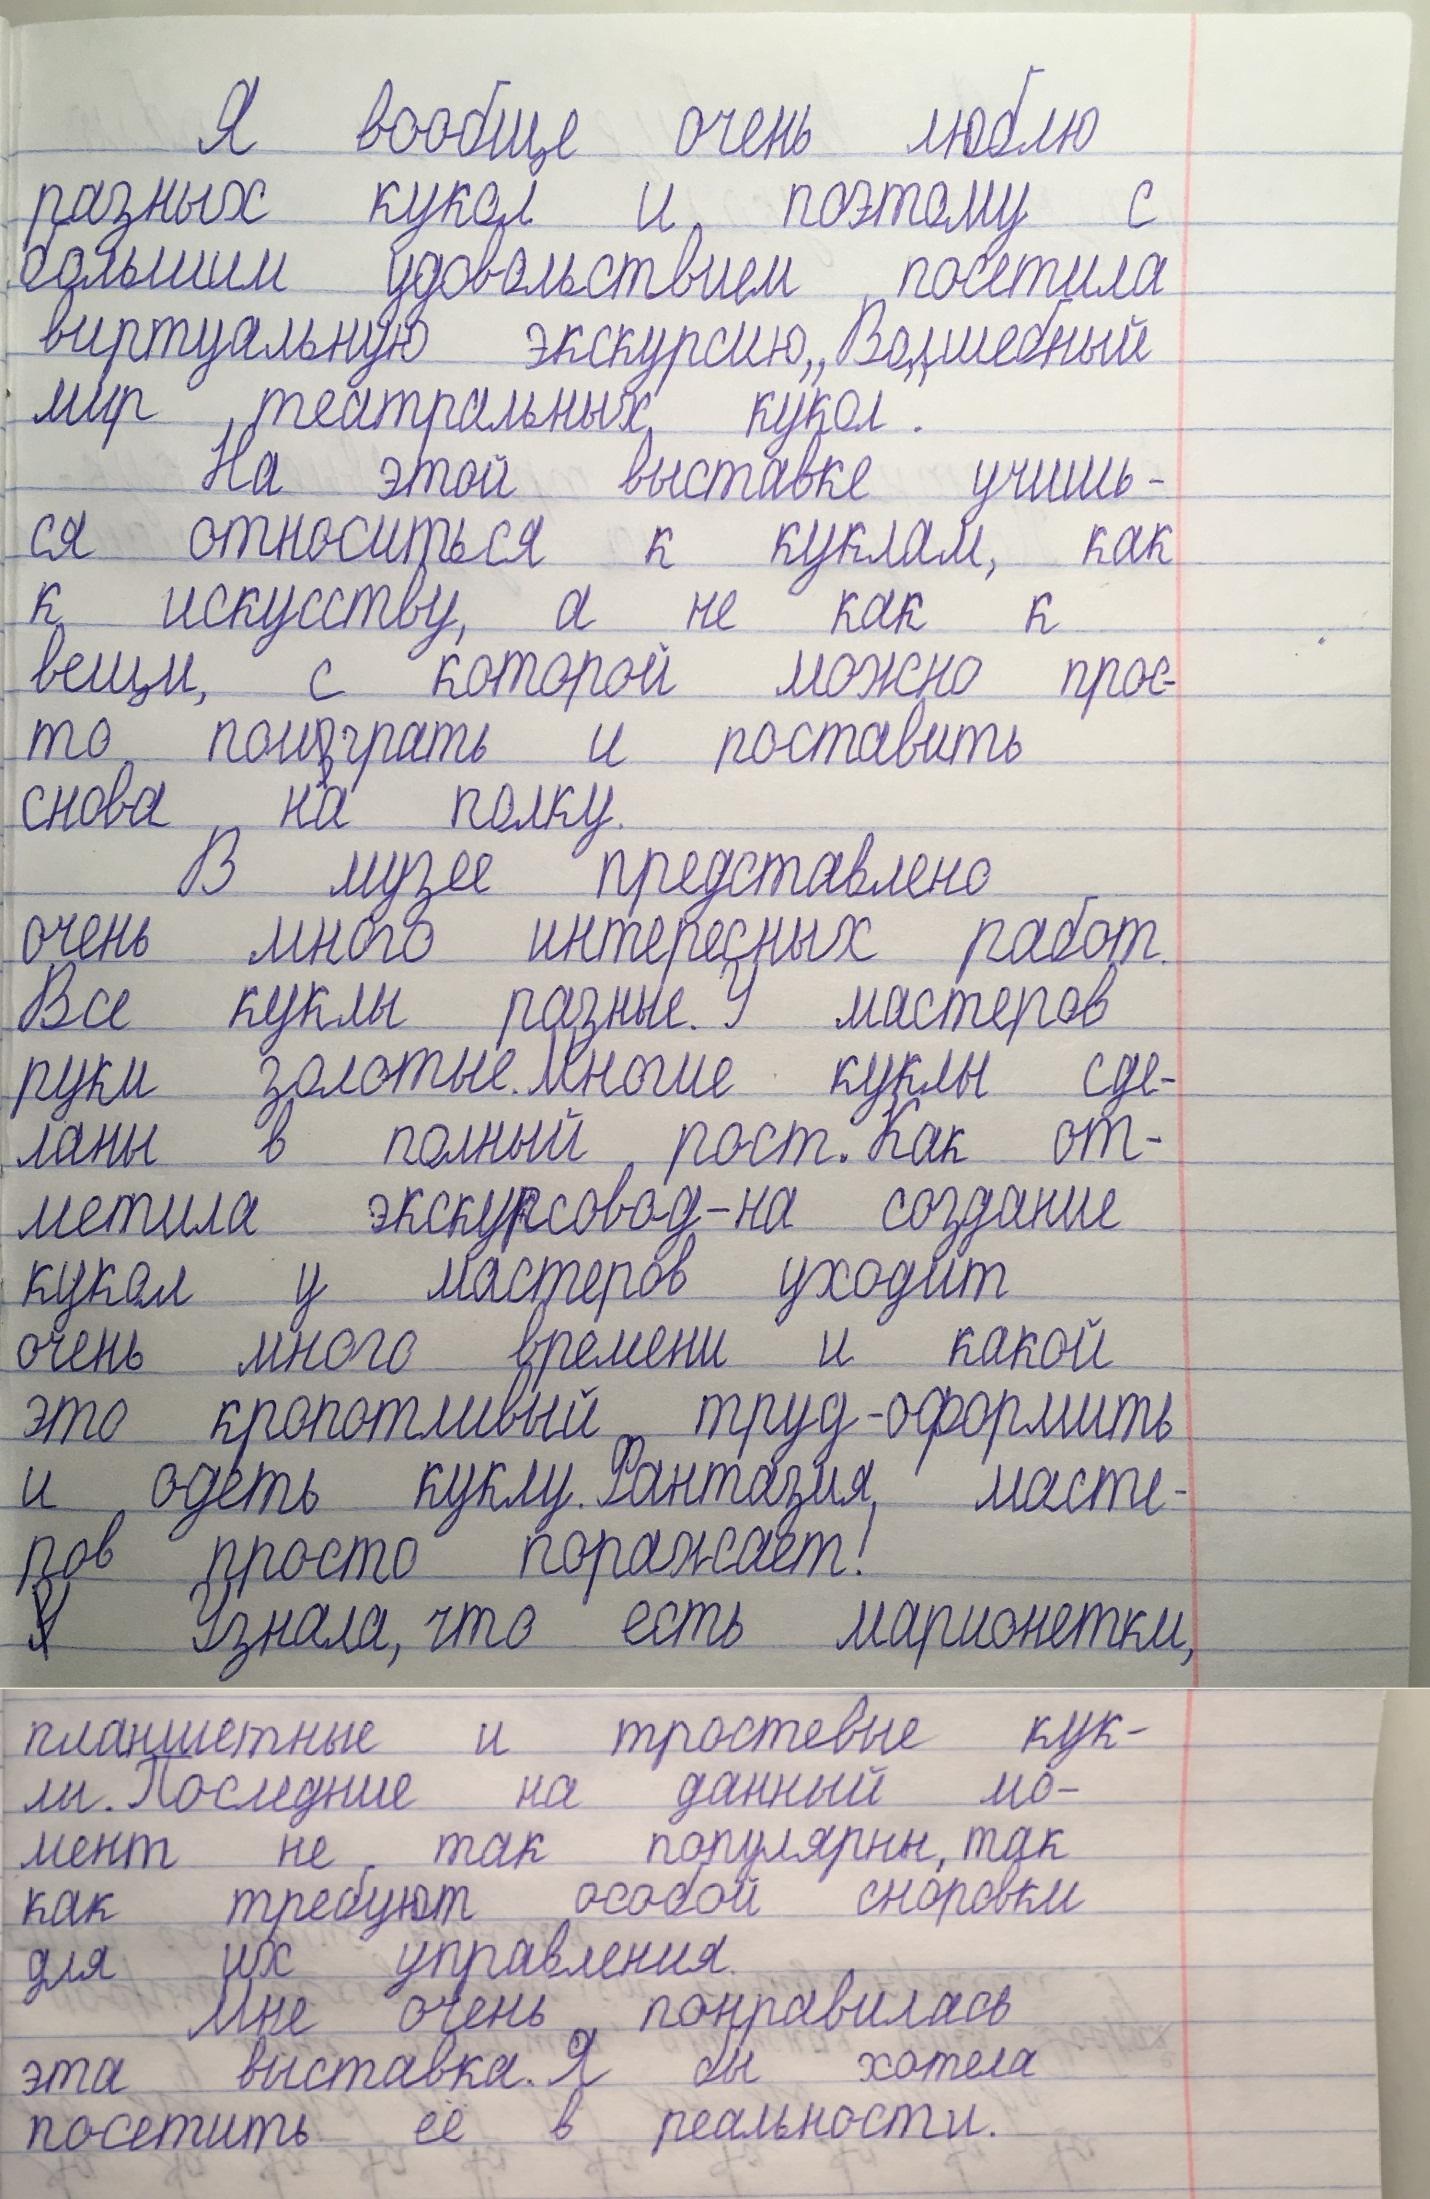 Я вообще очень люблю
разных кукол и поэтому с
большим удовольствием посетила
виртуальную экскурсию „Волшебный
мир театральных кукол.
На этой выставке учишь-
ся относиться к куклам, как
к искусству, а не как к
вещи, с которой можно прос-
то поиграть и поставить
снова на полку.
В музее представлено
очень много интересных работ.
Все куклы разные. У мастеров
руки золотые. Многие куклы сде-
ланы в полный рост. Как от-
метила экскурсовод-на создание
кукол у мастеров уходит
очень много времени и какой
это кропотливый труд-оформить
и одеть куклу. Фантазия масте-
ров просто поражает!
Узнала, что есть марионетки,
планшетные и тростевые кук-
лы. Последние на данный мо-
мент не так популярны, так
как требуют особой сноровки
для их управления.
Мне очень понравилась
эта выставка. Я бы хотела
посетить её в реальности.